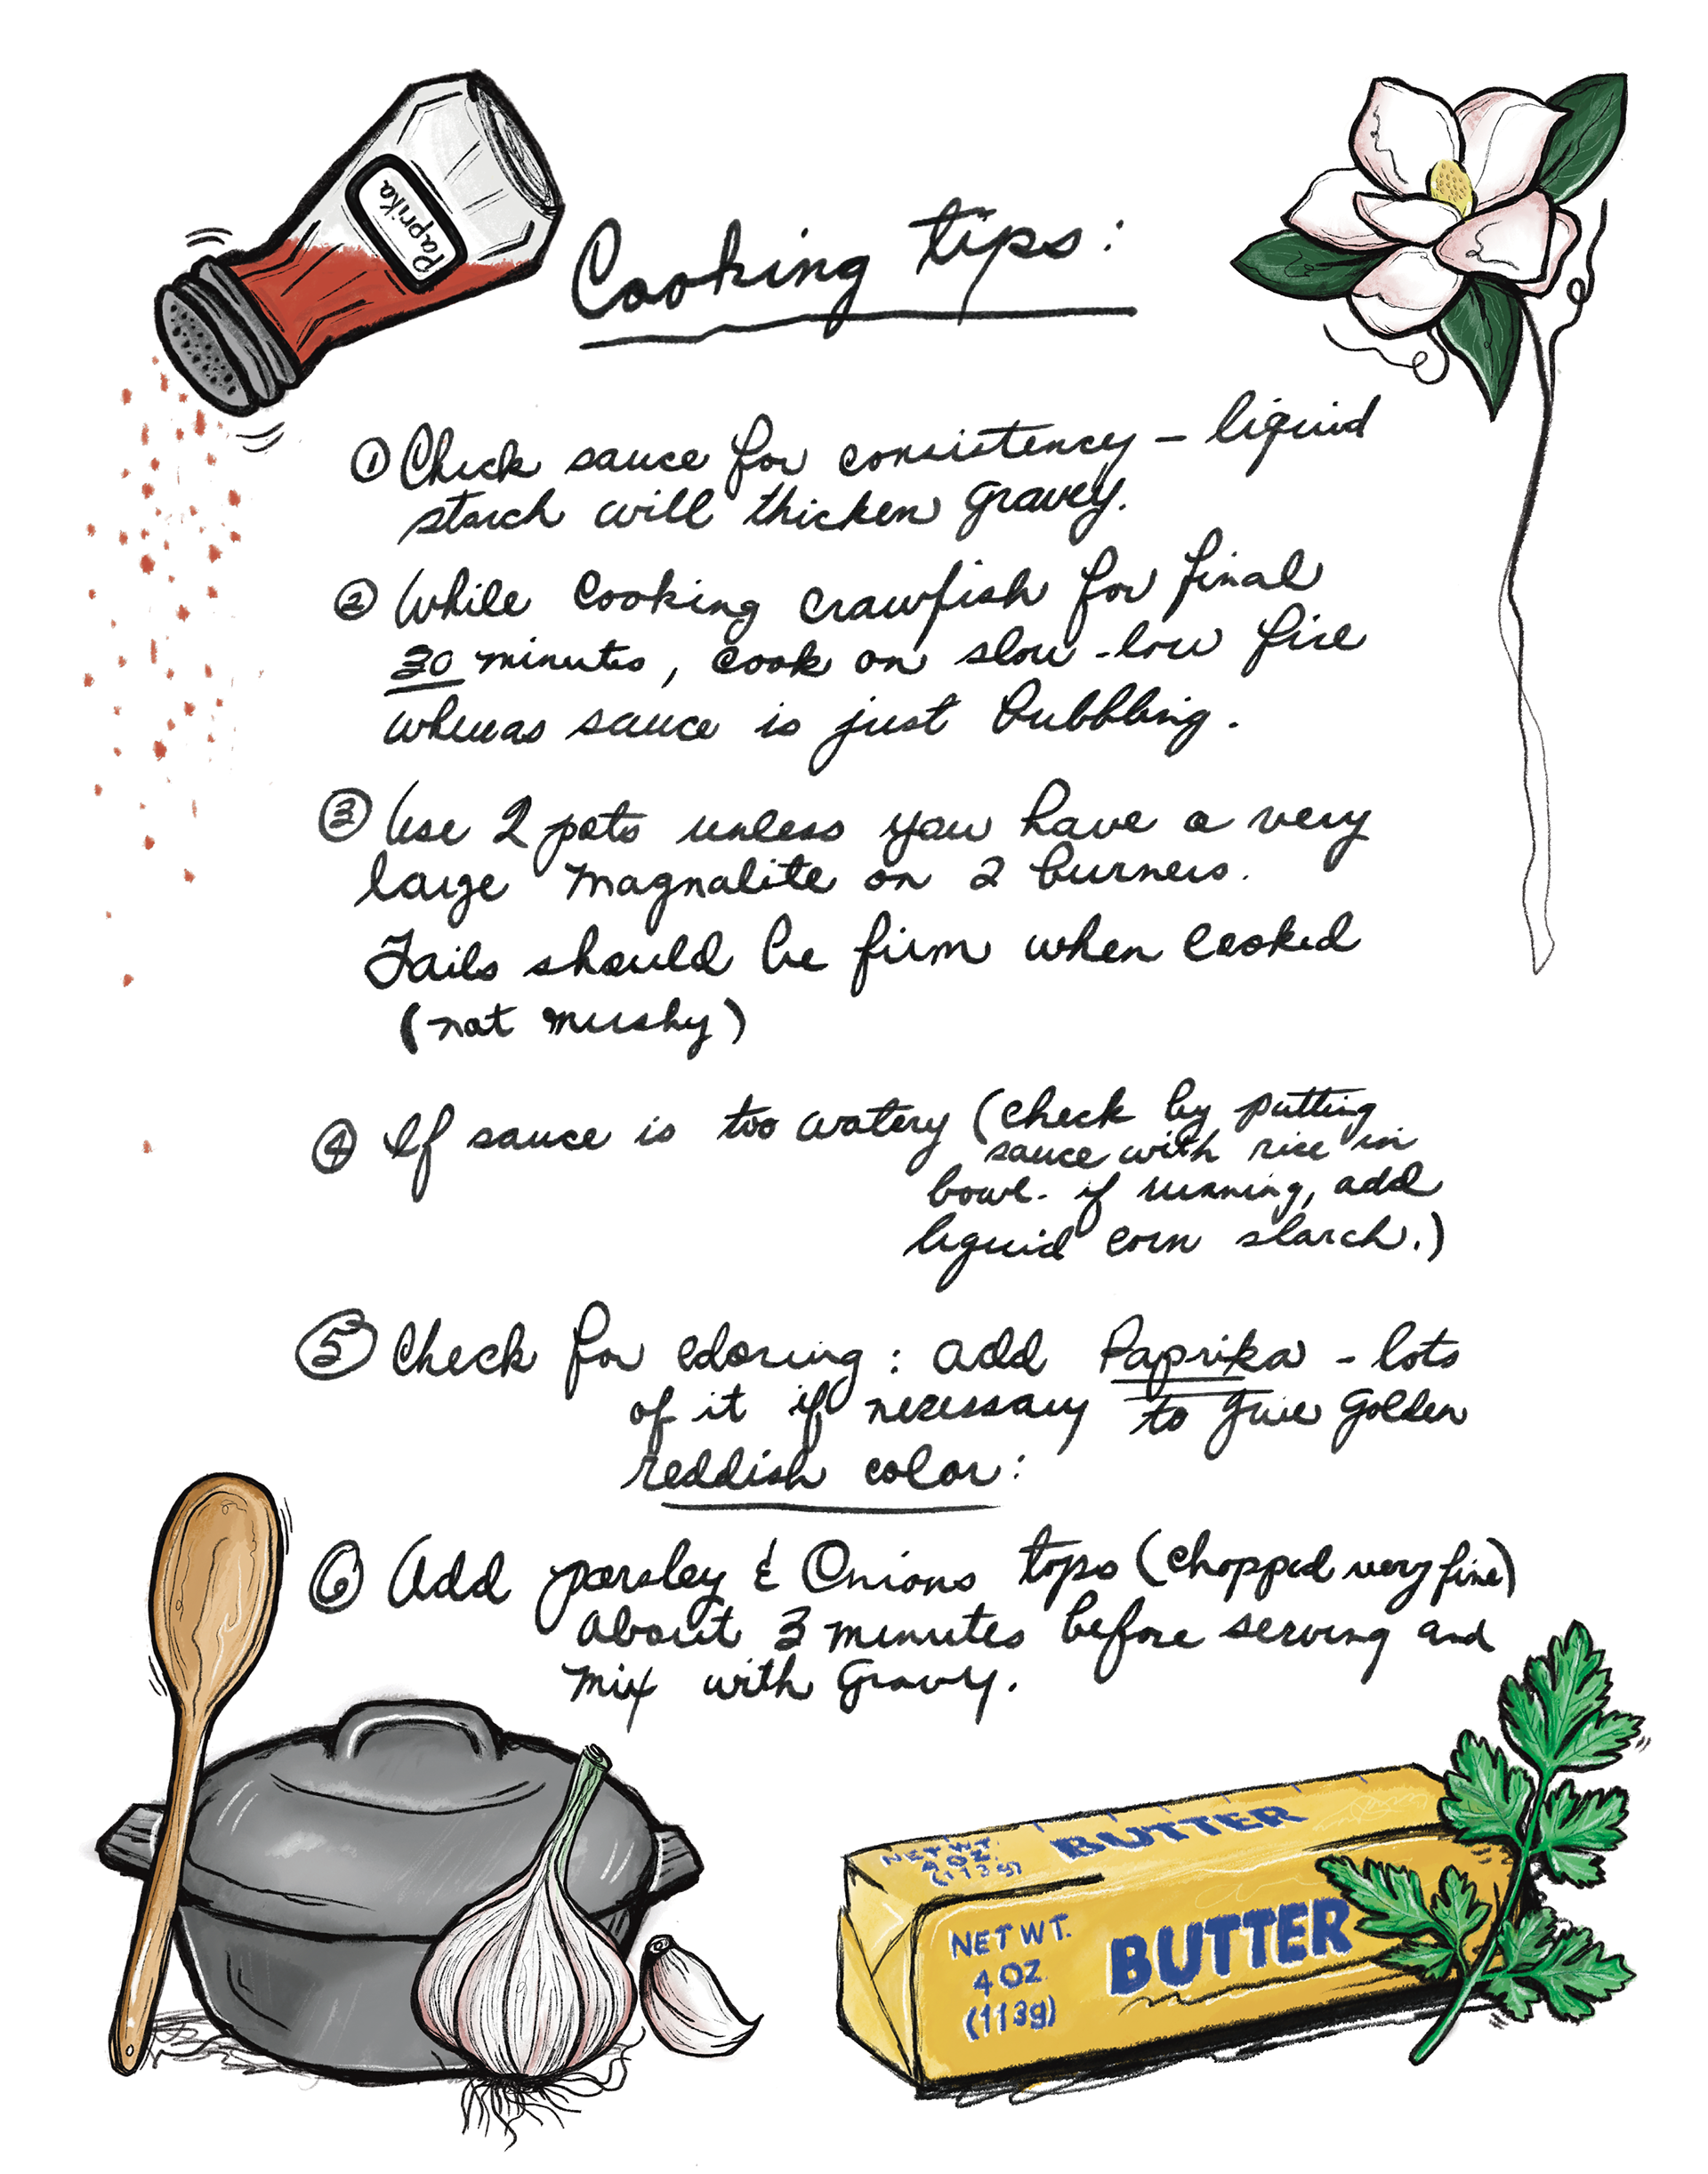 Paprika
Cooking tips:
① Check sauce for consistency – liquid
starch will thicken gravey.
② While cooking crawfish for final
30 minutes, cook on slow-low fire
whereas sauce is just bubbling.
③ Use 2 pots unless you have a very
large magnalite on 2 burners.
Tails should be firm when cooked
(not mushy)
④ If sauce is too watery (check by putting
sauce with rice in
bowl. if running, add
liquid corn starch.)
⑤ Check for coloring: add Paprika – lots
of it if necessary to give golden
reddish color:
⑥ Add parsley & Onions tops (chopped very fine)
about 3 minutes before serving and
mix with gravy.
NET WT. BUTTER
4 OZ.
(113g)
NET WT. BUTTER
4 OZ
(113g)